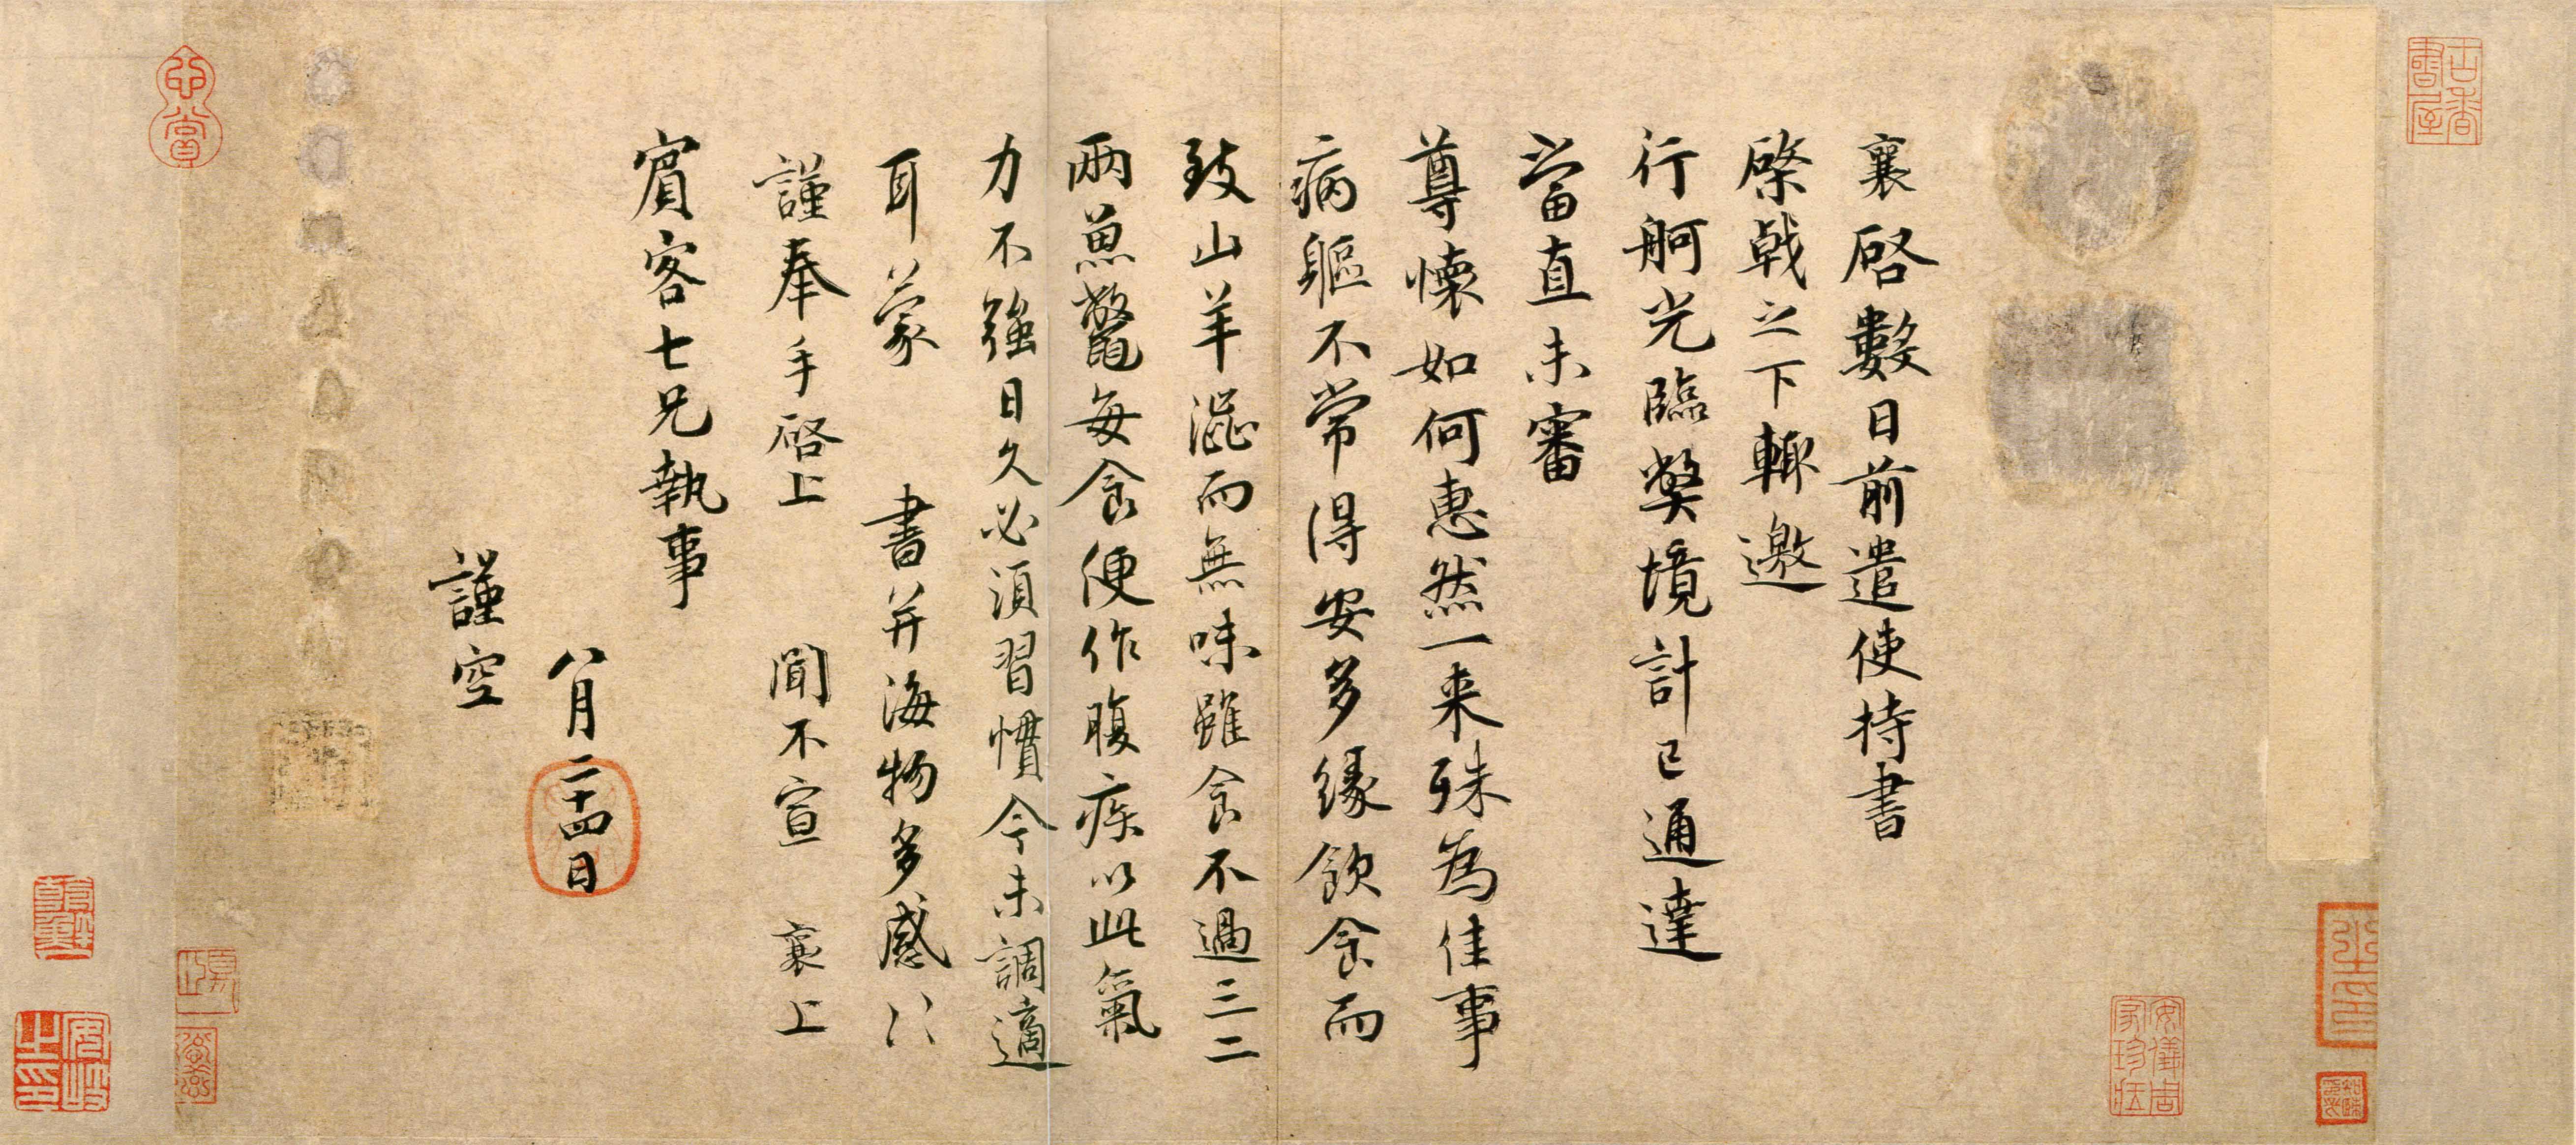 襄啓數日前遣使持書
棨戟之下輙邀
行舸光臨弊境計已通達
當直未審
尊懷如何惠然一来殊為佳事
病軀不常得安多緣飲食而
致山羊澁而無味雖食不過三二
兩魚鱉每食便作腹疾以此氣
力不強日久必須習慣今未調適
耳蒙 書并海物多感〻
謹奉手啓上 聞不宣 襄上
賔客七兄執事
八月二十四日
謹空
古香書屋
安儀周家珍藏
心賞